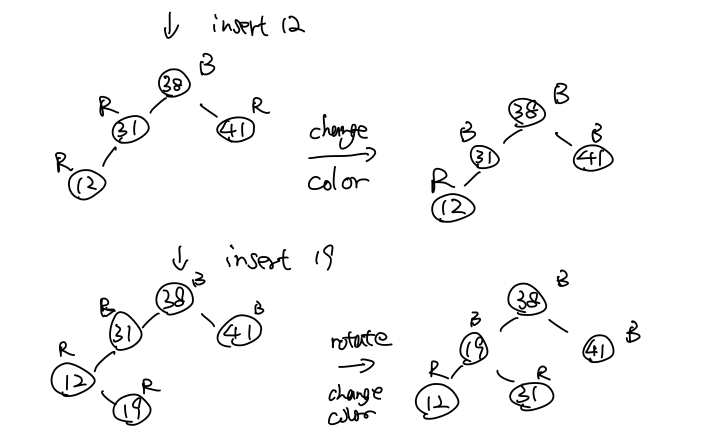 ↓ insert 12
38 B
R 31
41 R
R 12
change
color
38 B
B 31
B 41
R 12
↓ insert 19
38 B
B 31
41 B
R 12
19 R
rotate
change
color
38 B
B 19
41 B
R 12
R 31